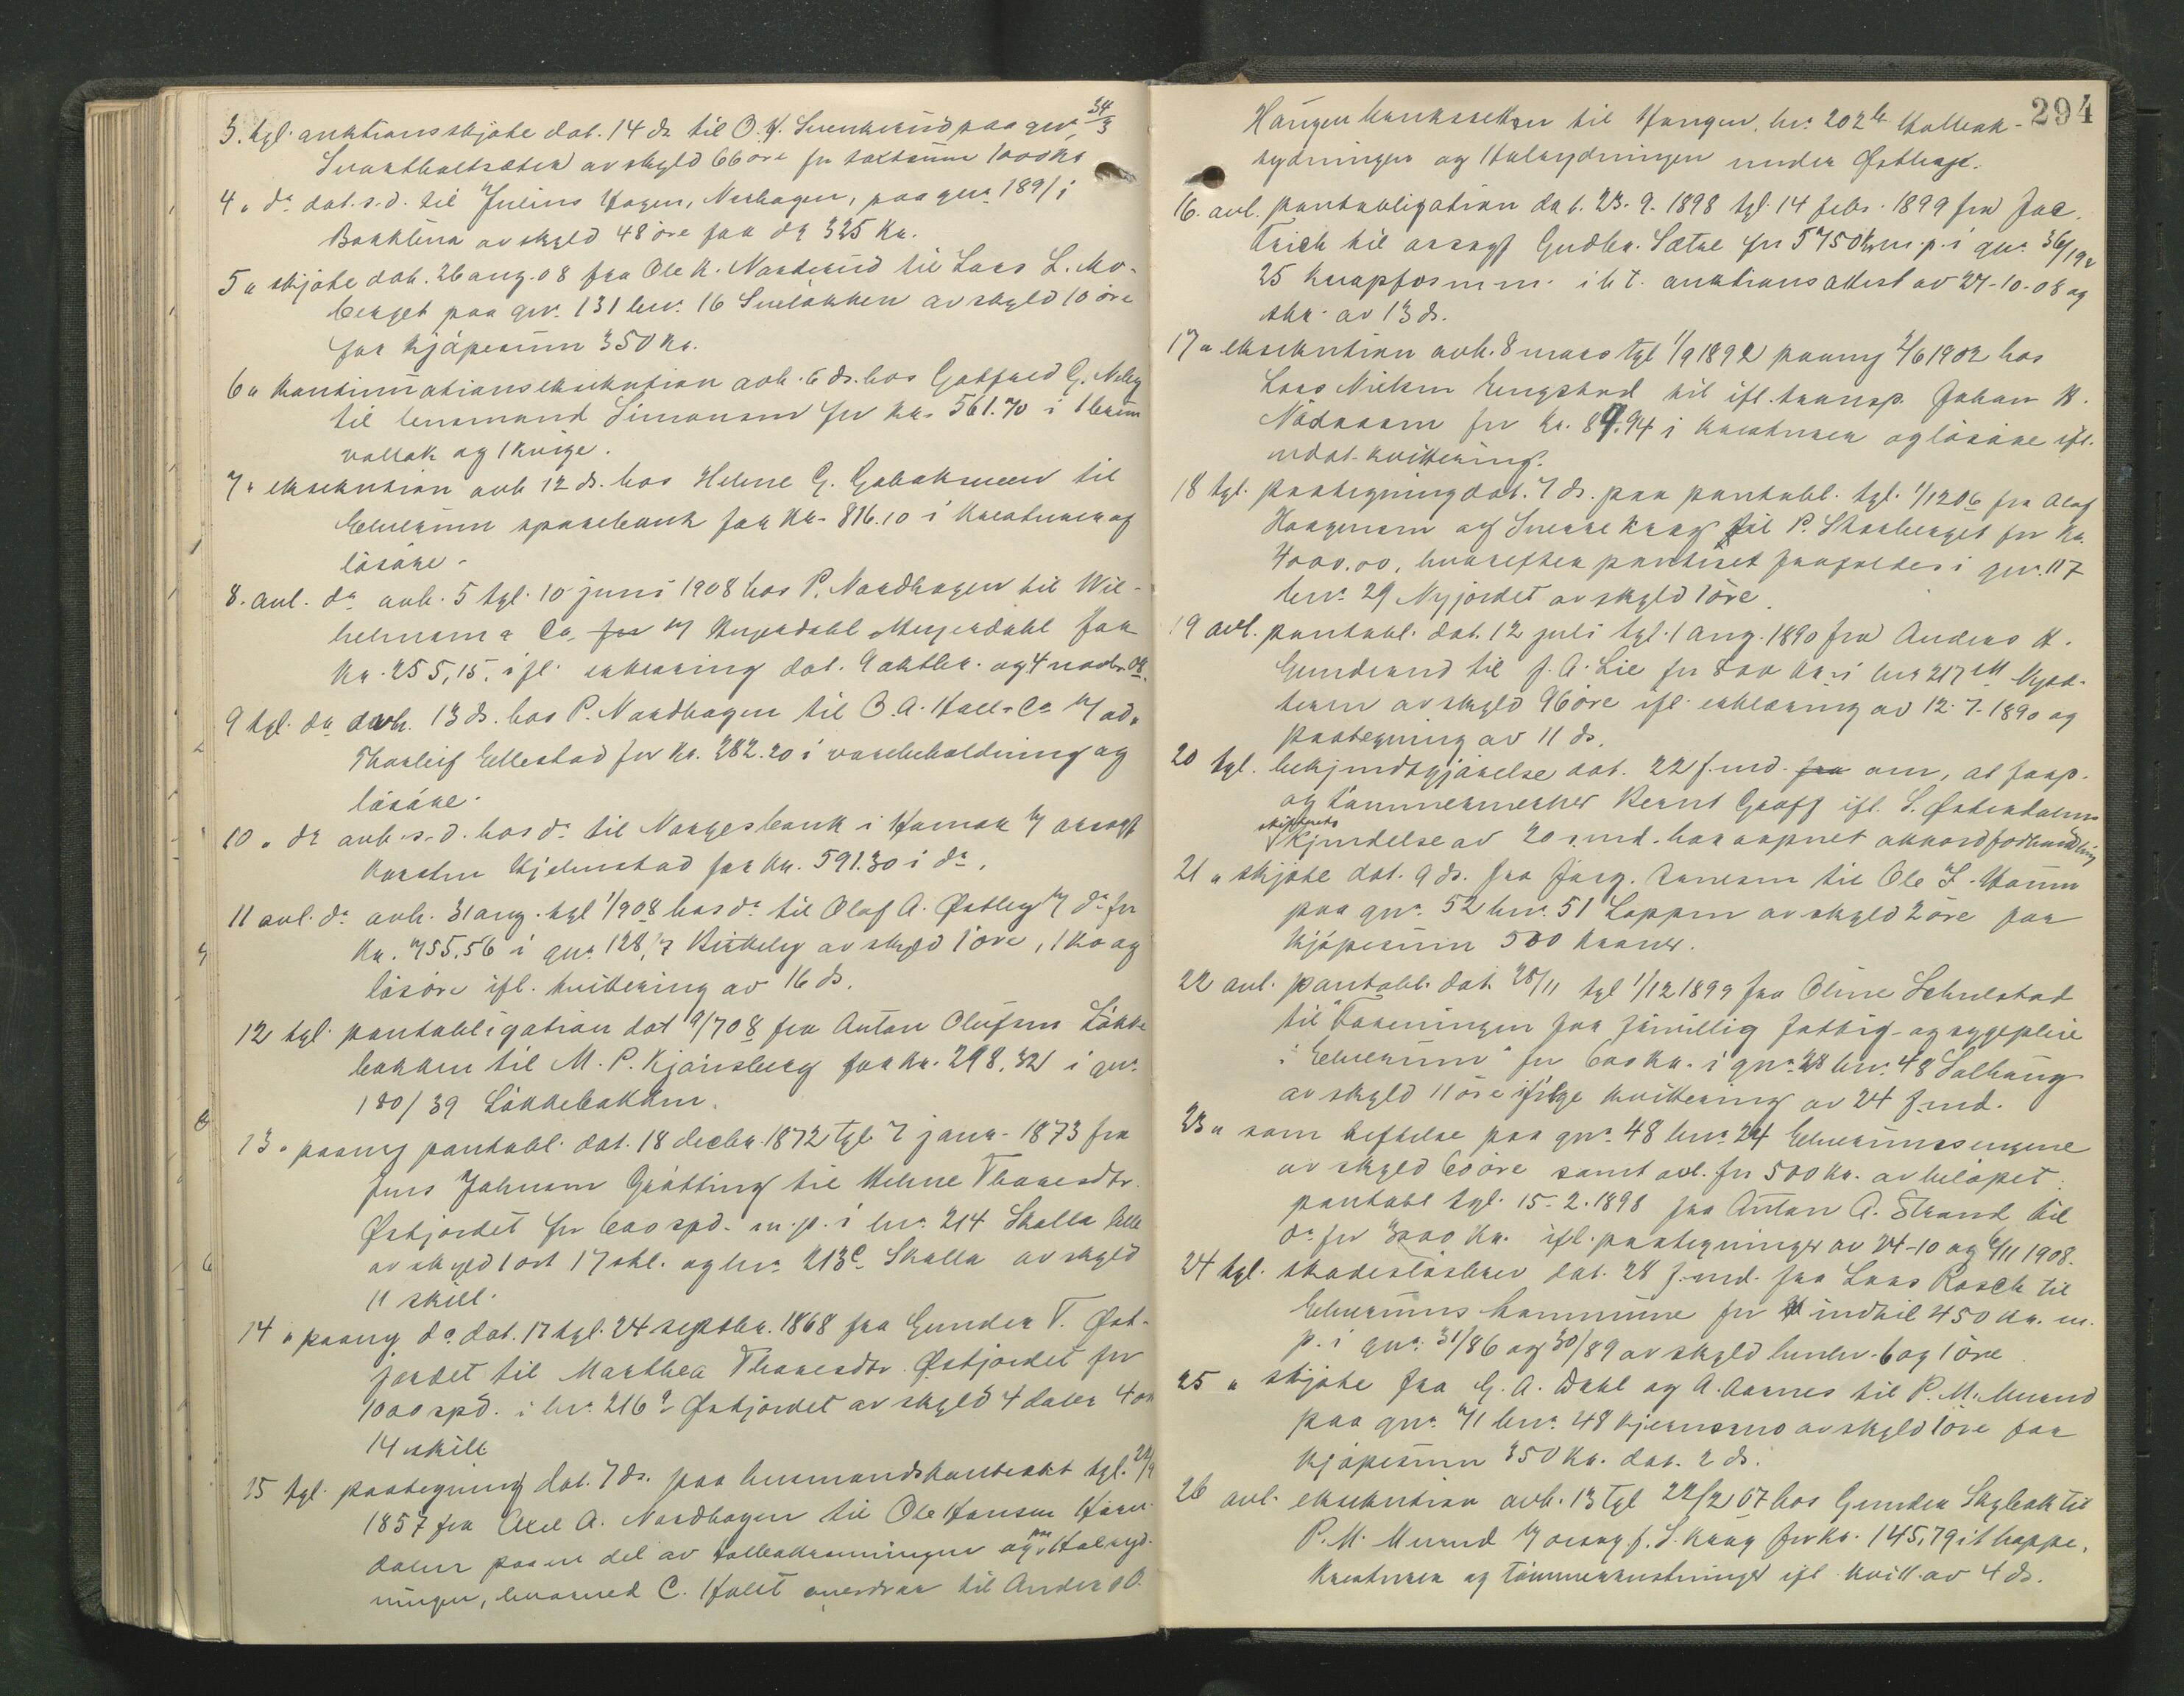 3. tgl. auktionsskjøte dat. 14 ds til O. H. Svenkerud paa gnr. 34/3
Svartholtsæter av skyld 66 øre for  1000 kr
4 „ do dat. s.d. til Julius Hagen, Nerhagen, paa gnr. 189/1
Bakklien av skyld 48 øre for do 325 kr.
5 „ skjøte dat. 26 aug. 08 fra Ole K. Norderud til Lars L. Mo-
berget paa gnr. 131 bnr. 16 Sneløkken av skyld 10 øre
for kjøpesum 350 kr.
6 „ kontinuationseksekution avh. 6 ds. hos Gotfred G. Neby
til lensmand Simonsen for kr. 561.70 i 1 brun
vallak og 1 kvige.
7 „ eksekution avh 12 ds. hos Helene G. Gobakmoen til
Elverum sparebank for kr. 816.10 i kreaturer og
løsøre.
8. avl. do avh. 5 tgl. 10 juni 1908 hos P. Nordhagen til Wil-
helmsen & Co for v/ Meyerdahl Meyerdahl for
kr. 255,15, ifl. erklæring dat. 9 oktbr. og 4 novbr. 08.
9 tgl. do avh. 13 ds. hos P. Nordhagen til O. A. Hall & Co v/ adv.
Thorleif Ellestad for kr. 282.20 i varebeholdning og
løsøre.
10 „ do avh. s.d. hos do til Norgesbank i Hamar v/ orsagf
Karsten Hjelmstad for kr. 591.30 i do.
11 avl. do avh. 31 aug. tgl 1/9 08 hos do til Olaf A. Østby v/ do for
kr. 755.56 i gnr. 128/7 Kirkeby av skyld 1 øre, 1 ko og
løsøre ifl. kvittering av 16 ds.
12 tgl. pantobligation dat 19/7 08 fra Anton Olufsen Løkke
bakken til M. P. Kjønsberg for kr. 298.32 i gnr.
180/39 Løkkebakken.
13 „ paany pantobl. dat. 18 decbr. 1872 tgl 7 janr. 1873 fra
Jens Johnsen Grøtting til Helene Thoresdtr.
Østjordet for 600 spd. m.p. i lnr. 214 Skalla lille
av skyld 1 ort 17 skl. og lnr. 213c Skalla av skyld
11 skill.
14 „ paany do dat. 17 tgl. 24 septbr. 1868 fra Gunder T. Øst-
jordet til Marthea Thoresdtr. Østjordet for
1000 spd. i lnr. 216a Østjordet av skyld 4 daler 4 ort
14 skill
15 tgl. paategning dat. 7 ds. paa husmandskontrakt tgl. 22/9
1857 fra Axel A. Nordhagen til Ole Hansen
dalen paa en del av  og paa Halsryd-
ningen, hvorved C. Holst overdrar til Anders O.
294
Haugen bruksretten til Haugen, lnr. 202b
rydningen og Halsrydningen under Østhage.
16. avl. pantobligation dat. 23. 9. 1898 tgl. 14 febr. 1899 fra Jac.
 til orsagf Gudbr. Sætre for 5750 kr. m.p. i gnr. 36/19,
25 Knapfos m.m. iht. auktionsattest av 27-10-08 og
skr. av 13 ds.
17 „ eksekution avh. 8 mars tgl 1/9 1892 paany 2/6 1902 hos
Lars Nielsen Engstad til ifl. transp. Johan K.
Nødaasen for kr. 89.94 i kreaturer og løsøre ifl.
udat. kvittering.
18 tgl. paategning dat. 7 ds. paa pantobl. tgl. 1/12 06 fra Olaf
Haagensen og Sverre Krag til P. Skarberget for kr.
4000.00, hvorefter pantet frafaldes i gnr. 117
bnr. 29 Nyjordet av skyld 1 øre.
19 avl. pantobl. dat. 12 juli tgl. 1 aug. 1890 fra Anders K.
Gunderud til J. A. Lie for 800 kr. i lnr 217
 av skyld 96 øre ifl. erklæring av 12-7-1890 og
paategning av 11 ds.
20 tgl. bekjendtgjørelse dat. 22 f.md. fra om, at forp.
og tømmermerker Bernt Graff ifl. S. Østerdalens
skifterets
kjendelse av 20 s.md. har aapnet akkordforhandling
21 „ skjøte dat. 9 ds. fra Jørg. Arnesen til Ole I.
paa gnr. 52 bnr. 51 Loppen av skyld 2 øre for
kjøpesum 500 kroner.
22 avl. pantobl. dat. 28/11 tgl 1/12 1899 fra Oline Schulstad
til "Foreningen for frivillig fattig- og sygepleie
i Elverum" for 600 kr. i gnr. 28 bnr. 48 Solhaug
av skyld 11 øre ifølge kvittering av 24 f.md.
23 „ som heftelse paa gnr. 48 bnr. 24 Elverumsengene
av skyld 60 øre samt avl. for 500 kr. av beløpet:
pantobl tgl. 15-2-1898 fra Anton A. Strand til
do for 3000 kr. ifl. paategninger av 24-10 og 6/11 1908.
24 tgl. skadesløsbrev dat. 28 f.md. fra Lars Rasch til
Elverums kommune for indtil 450 kr. m.
p. i gnr. 31/86 og 30/89 av skyld henhv. 6 og 1 øre
25 „ skjøte fra G. A. Dahl og A. Aarnes til P. M. Murud
paa gnr. 71 bnr. 48 Kjernmo av skyld 1 øre for
kjøpesum 350 kr. dat. 2 ds.
26 avl. eksekution avh. 13 tgl 22/2 07 hos Gunder Skybak til
P. M. Murud v/ orsagf. S. Krag for kr. 145,79 i 1 hoppe,
kreaturer og tømmerkustninger ifl. kvitt. av 4 ds.